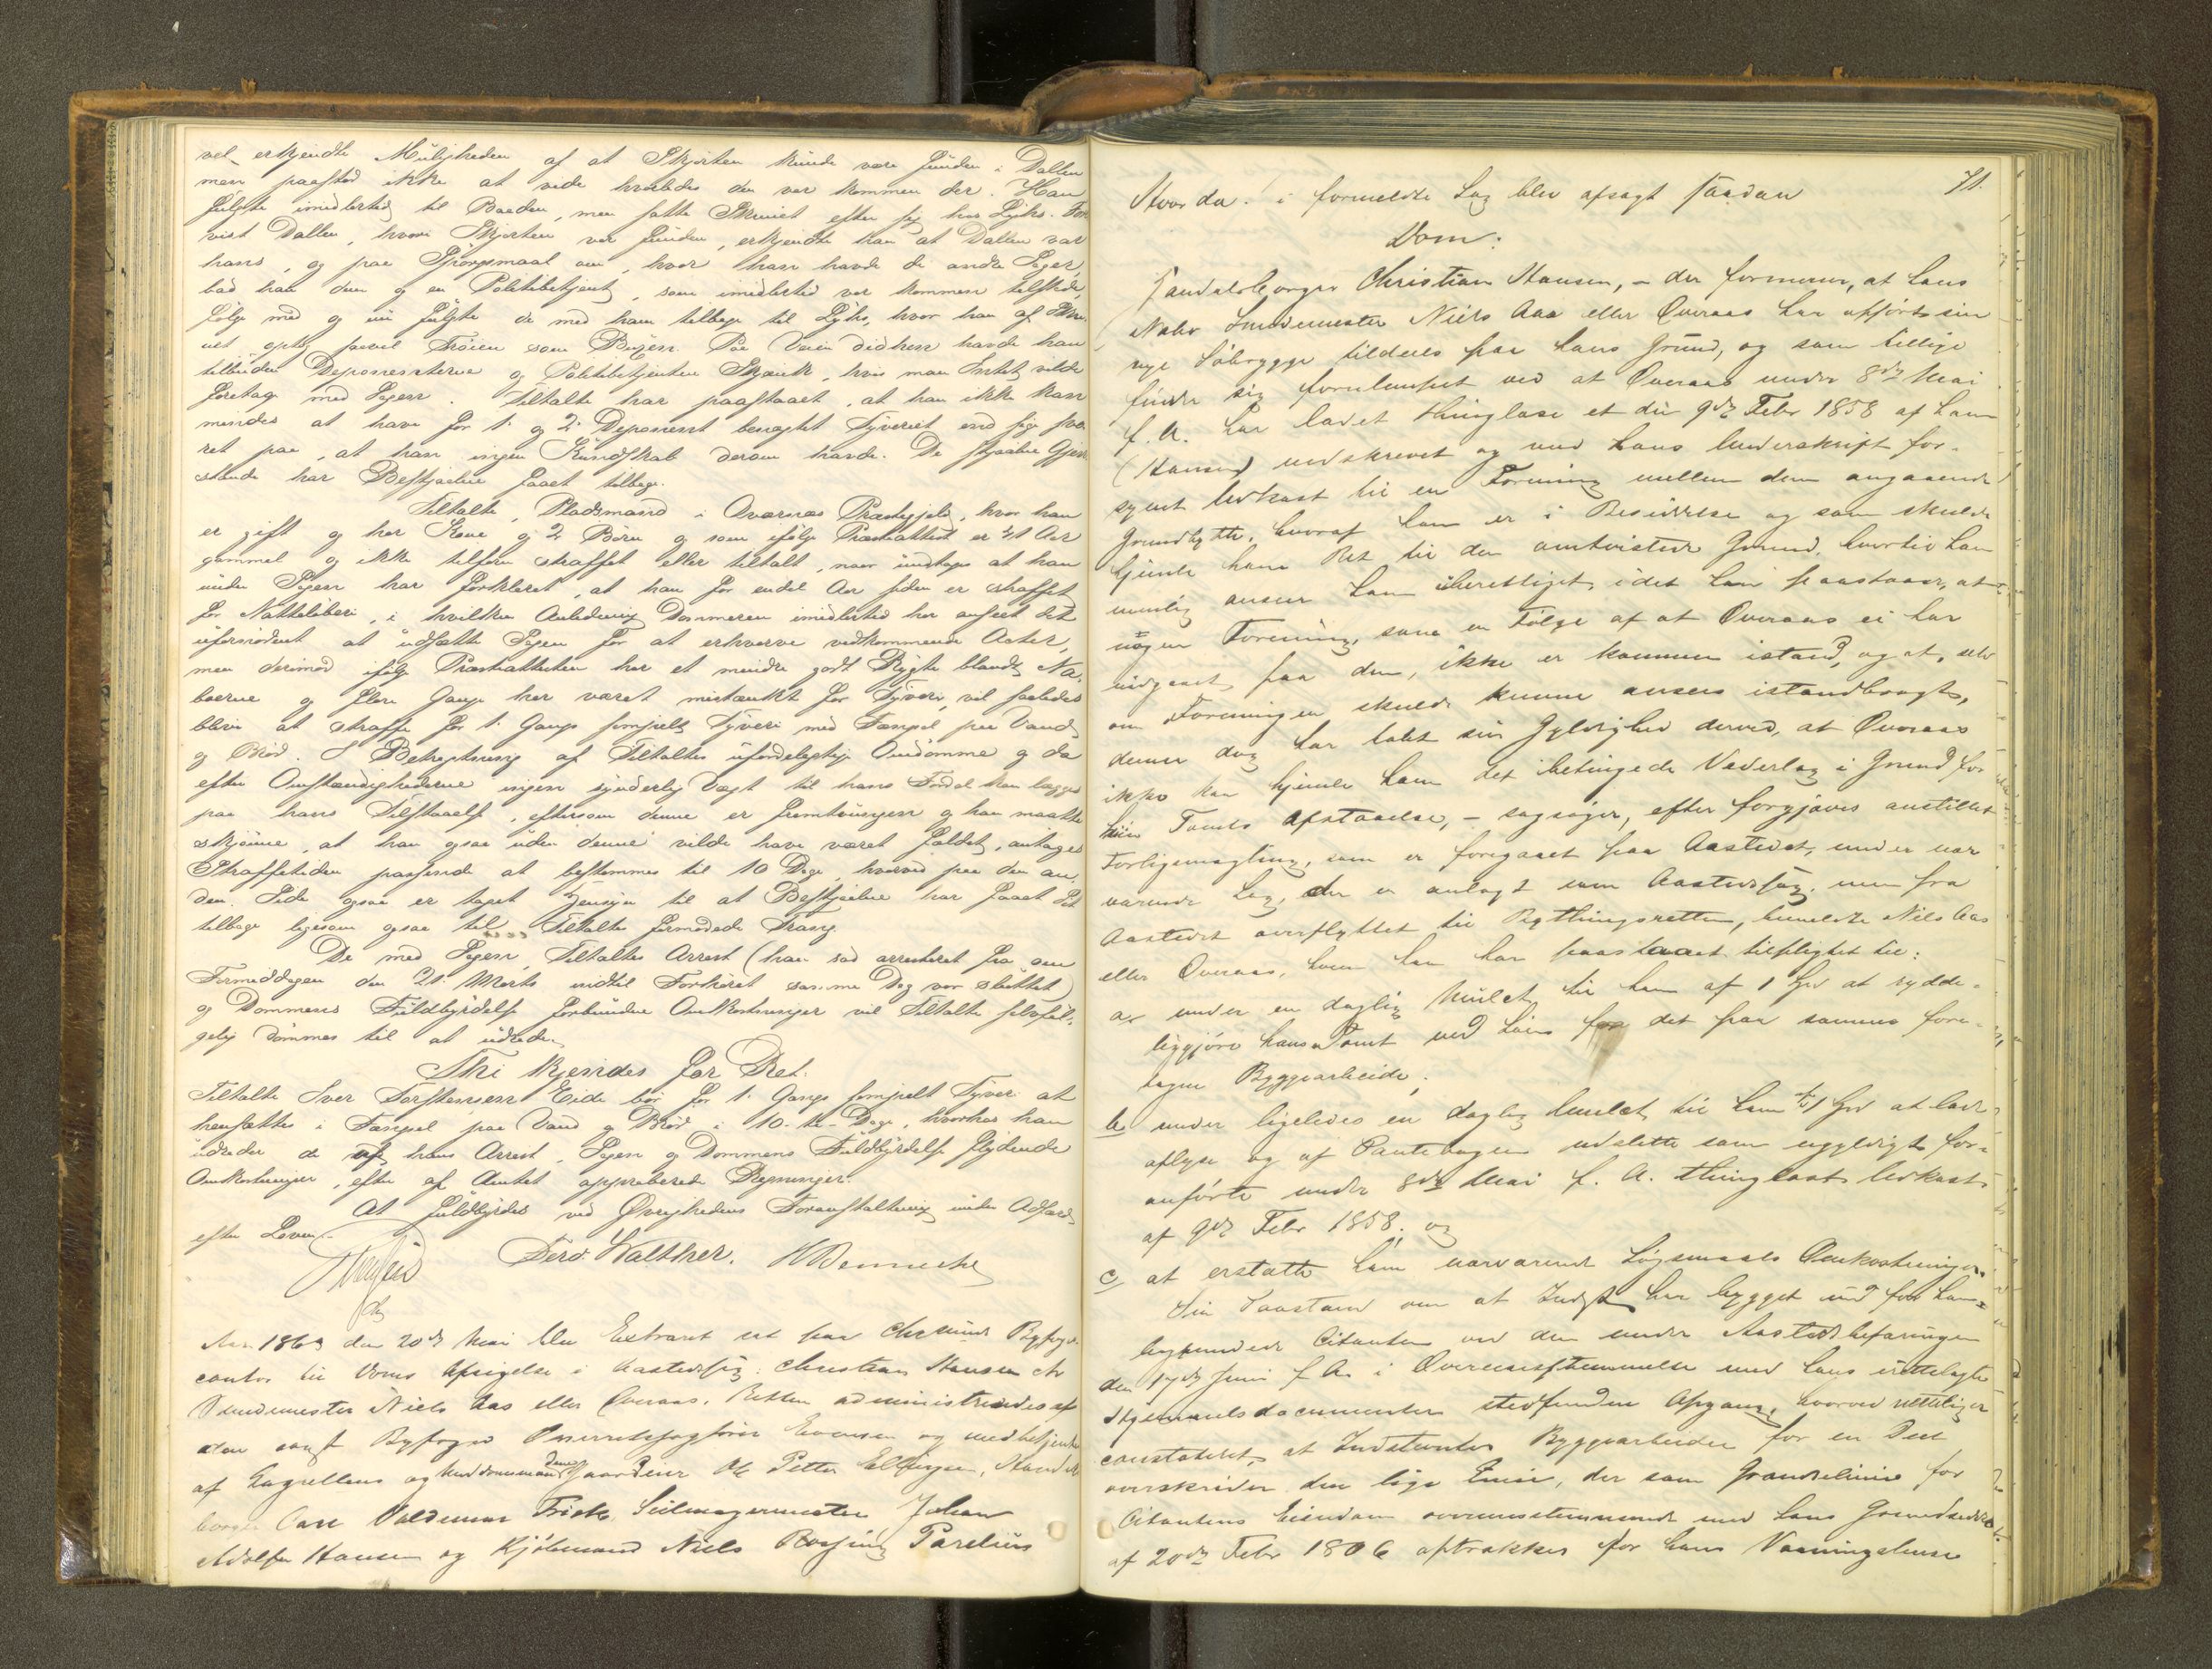 vel erkjendte Muligheden af at Skjorten kunde være funden i Dallen
men paastod ikke at vide hvorledes den var kommen der. Han
fulgte imidlertid til Baaden, men satte Skrinet efter sig hos Lyhs. Fore
vist Dallen, hvori Skjorten var funden, erkjendte han at Dallen var
hans, og paa Spørgsmaal om, hvor han havde de andre Sager,
bad han dem og en Politibetjent, som imidlertid var kommen tilstede,
følge med og nu fulgte de med ham tilbage til Lyhs, hvor han af Skri-
net optog saavel Trøien som Buxen. Paa Veien didhen havde han
tilbudt Deponenterne og Politibetjenten Skjænk, hvis man Intet vilde
foretage med Sagen. Tiltalte har paastaaet, at han ikke kan
mindes at have for 1. og 2. Deponent benægtet Tyveriet end sige sva-
ret paa, at han ingen Kundskab derom havde. De stjaalne Gjen-
stande har Bestjaalne faaet tilbage.
Tiltalte, Pladsmand i Qværnæs Præstegjeld, hvor han
er gift og har Kone og 2 Børn og som ifølge Præsteattest er 41 Aar
gammel og ikke tilforn straffet eller tiltalt, naar undtages at han
under Sagen har forklaret, at han for endel Aar siden er straffet
for Natteløberi, i hvilken Anledning Dommeren imidlertid har anseet det
ufornødent at udsætte Sagen for at erhverve vedkommende Acter,
men derimod ifølge Præsteattesten har et mindre godt Rygte blandt Na-
boerne og flere Gange har været mistænkt for Tyveri, vil saaledes
blive at straffe for 1. Gangs simpelt Tyveri med Fængsel paa Vand
og Brød. I Betragtning af Tiltaltes ufordelagtige Omdømme og da
efter Omstændighederne ingen synderlig Vægt til hans Fordel kan lægges
paa hans Tilstaaelse, eftersom denne er fremtvungen og han maatte
skjønne, at han ogsaa uden denne vilde have været fældet, antages
Straffetiden passende at bestemmes til 10 Dage, hvorved paa den an-
den Side ogsaa er taget Hensyn til at Bestjaalne har faaet Sit
tilbage ligesom ogsaa til Tiltaltes formodede Trang.
De med Sagen, Tiltaltes Arrest (han sad arresteret fra om
Formiddagen den 21. Marts indtil Forhøret samme Dag var sluttet)
og Dommens Fuldbyrdelse forbundne Omkostninger vil Tiltalte selvføl-
gelig dømmes til at udrede.
Thi kjendes for Ret:
Tiltalte Iver Torstensen Eide bør for 1. Gangs simpelt Tyveri at
hensættes i Fængsel paa Vand og Brød i 10 - ti - Dage, hvorhos han
udreder de af hans Arrest, Sagen og Dommens Fuldbyrdelse flydende
Omkostninger, efter af Amtet approberede Regninger.
At fuldbyrdes ved Øvrighedens Foranstaltning under Adfærd
efter Loven.
Ferd. Walther. H Wennecke
Aar 1863 den 20de Mai blev Extraret sat paa Chrsunds Byfoged-
contor til Doms Afsigelse i Aastedssag: Christian Hansen ctr
Smedemester Niels Aas eller Overaas. Retten administreredes af
den const Byfoged Overretssagfører Evensen og medbetjentes
af Lagrettens og Meddomsmænd Gaardeier Ole Petter Ellingsen, Handels-
borger Carl Valdemar Frisk, Seilmagermester Johan
Adolfer Hansen og Kjøbmand Niels Rossing Parelius
71.
Hvorda: i formeldte Sag blev afsagt saadan
Dom:
Handelsborger Christian Hansen, - der formener, at hans
Nabo Smedemester Niels Aas eller Overaas har opført sin
nye Søbrygge tildeels paa hans Grund, og som tillige
finder sig fornærmet ved at Overaas under 8de Mai
f. A. har ladet thinglæse et du 9de Febr 1858 af ham
(Hansen) nedskrevet og med hans Underskrift for-
synet Udkast til en Forening mellem dem angaaende
Grundbytte, hvoraf han er i Besiddelse og som skulde
hjemle ham Ret til den omtvistede Grund, hvortil han
nemlig anseer ham uberettiget, idet han paastaaer, at
nogen Forening, som en Følge af at Overaas ei har
indgaaet paa den, ikke er kommen istand, og at, selv
om Foreningen skulde kunne ansees istandbragt,
denne dog har tabt sin Gyldighed derved, at Overaas
ikke kan hjemle ham det betingede Vederlag i Grund for
hiin Tomts Afstaaelse, - sagsøger, efter forgjæves anstillet
Forligsmægling, som er foregaaet paa Aastedet, under nær
værende Sag, der er anlagt som Aastedssag, men fra
Aastedet overflyttet til Bythingsretten, bemeldte Niels Aas
eller Overaas, hvem han har paastaaet tilpligtet til:
a, under en daglig Mulct til ham af 1 Spd at rydde-
liggjøre hans Tomt ved hans for det paa samme fore-
tagne Byggearbeide;
b, under ligeledes en daglig Mulct til ham af 1 Spd at lade
aflyse og af Pantebogen udslette som ugyldigt for-
anførte under 8de Mai f. A. thinglæste Udkast
af 9de Febr 1858; og
c, at erstatte ham nærværende Søgsmaals Omkostninger.
Sin Paastand om at Indst har bygget ind paa ham
begrunder Citanten ved den under Aastedsbefaringen
den 17de Juni f. A. i Overeensstemmelse med hans irettelagte
Hjemmelsdocumenter stedfundne Opgang, hvorved nettelig er
constateret, at Indstevntes Byggearbeider for en Deel
overskrider den lige Linie, der som Grændselinie for
Citantens Eiendom overensstemmende med hans Grundseddel
af 20de Febr 1806 aftrækkes for hans Vaaningshuus